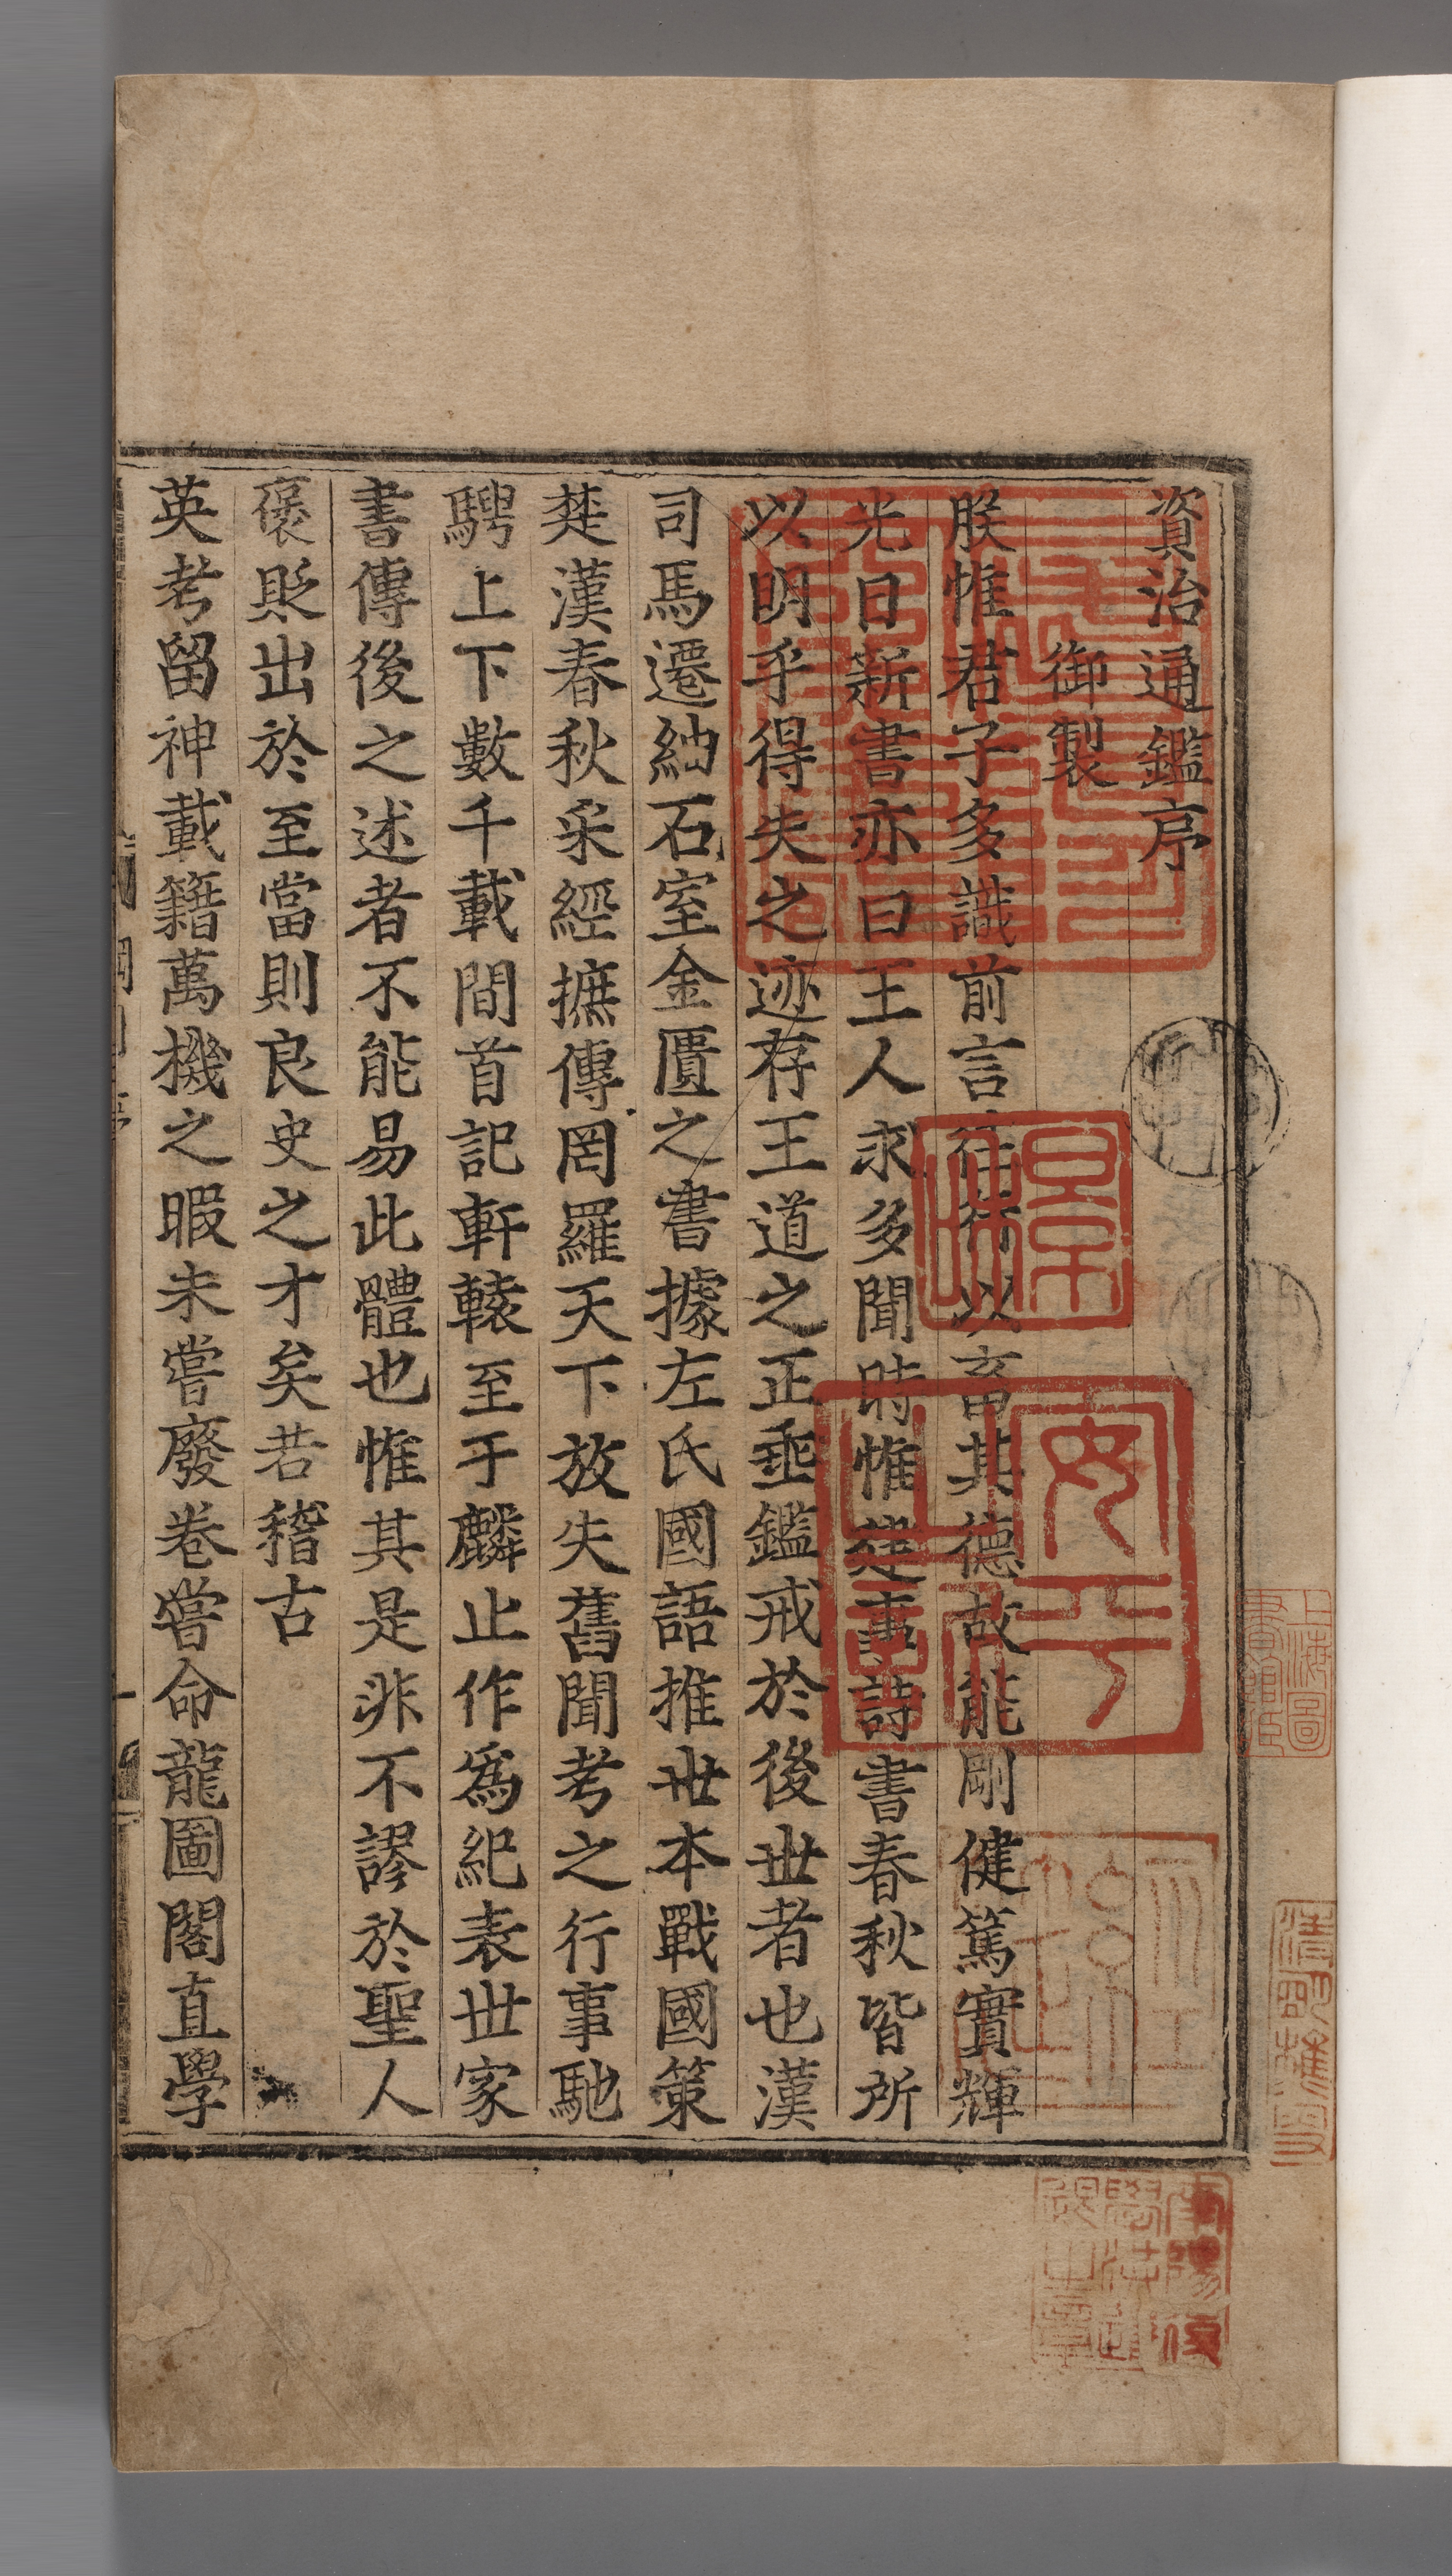 資治通鑑序
御製
朕惟君子多識前言往行以畜其德故能剛健篤實輝
光日新書亦曰王人求多聞時惟建事詩書春秋皆所
以明乎得失之迹存王道之正垂鑑戒於後世者也漢
司馬遷紬石室金匱之書據左氏國語推世本戰國策
楚漢春秋采經摭傳罔羅天下放失舊聞考之行事馳
騁上下數千載間首記軒轅至于麟止作爲紀表世家
書傳後之述者不能易此體也惟其是非不謬於聖人
褒貶出於至當則良史之才矣若稽古
英考留神載籍萬機之暇未嘗廢卷嘗命龍圖閣直學
上海圖書館藏